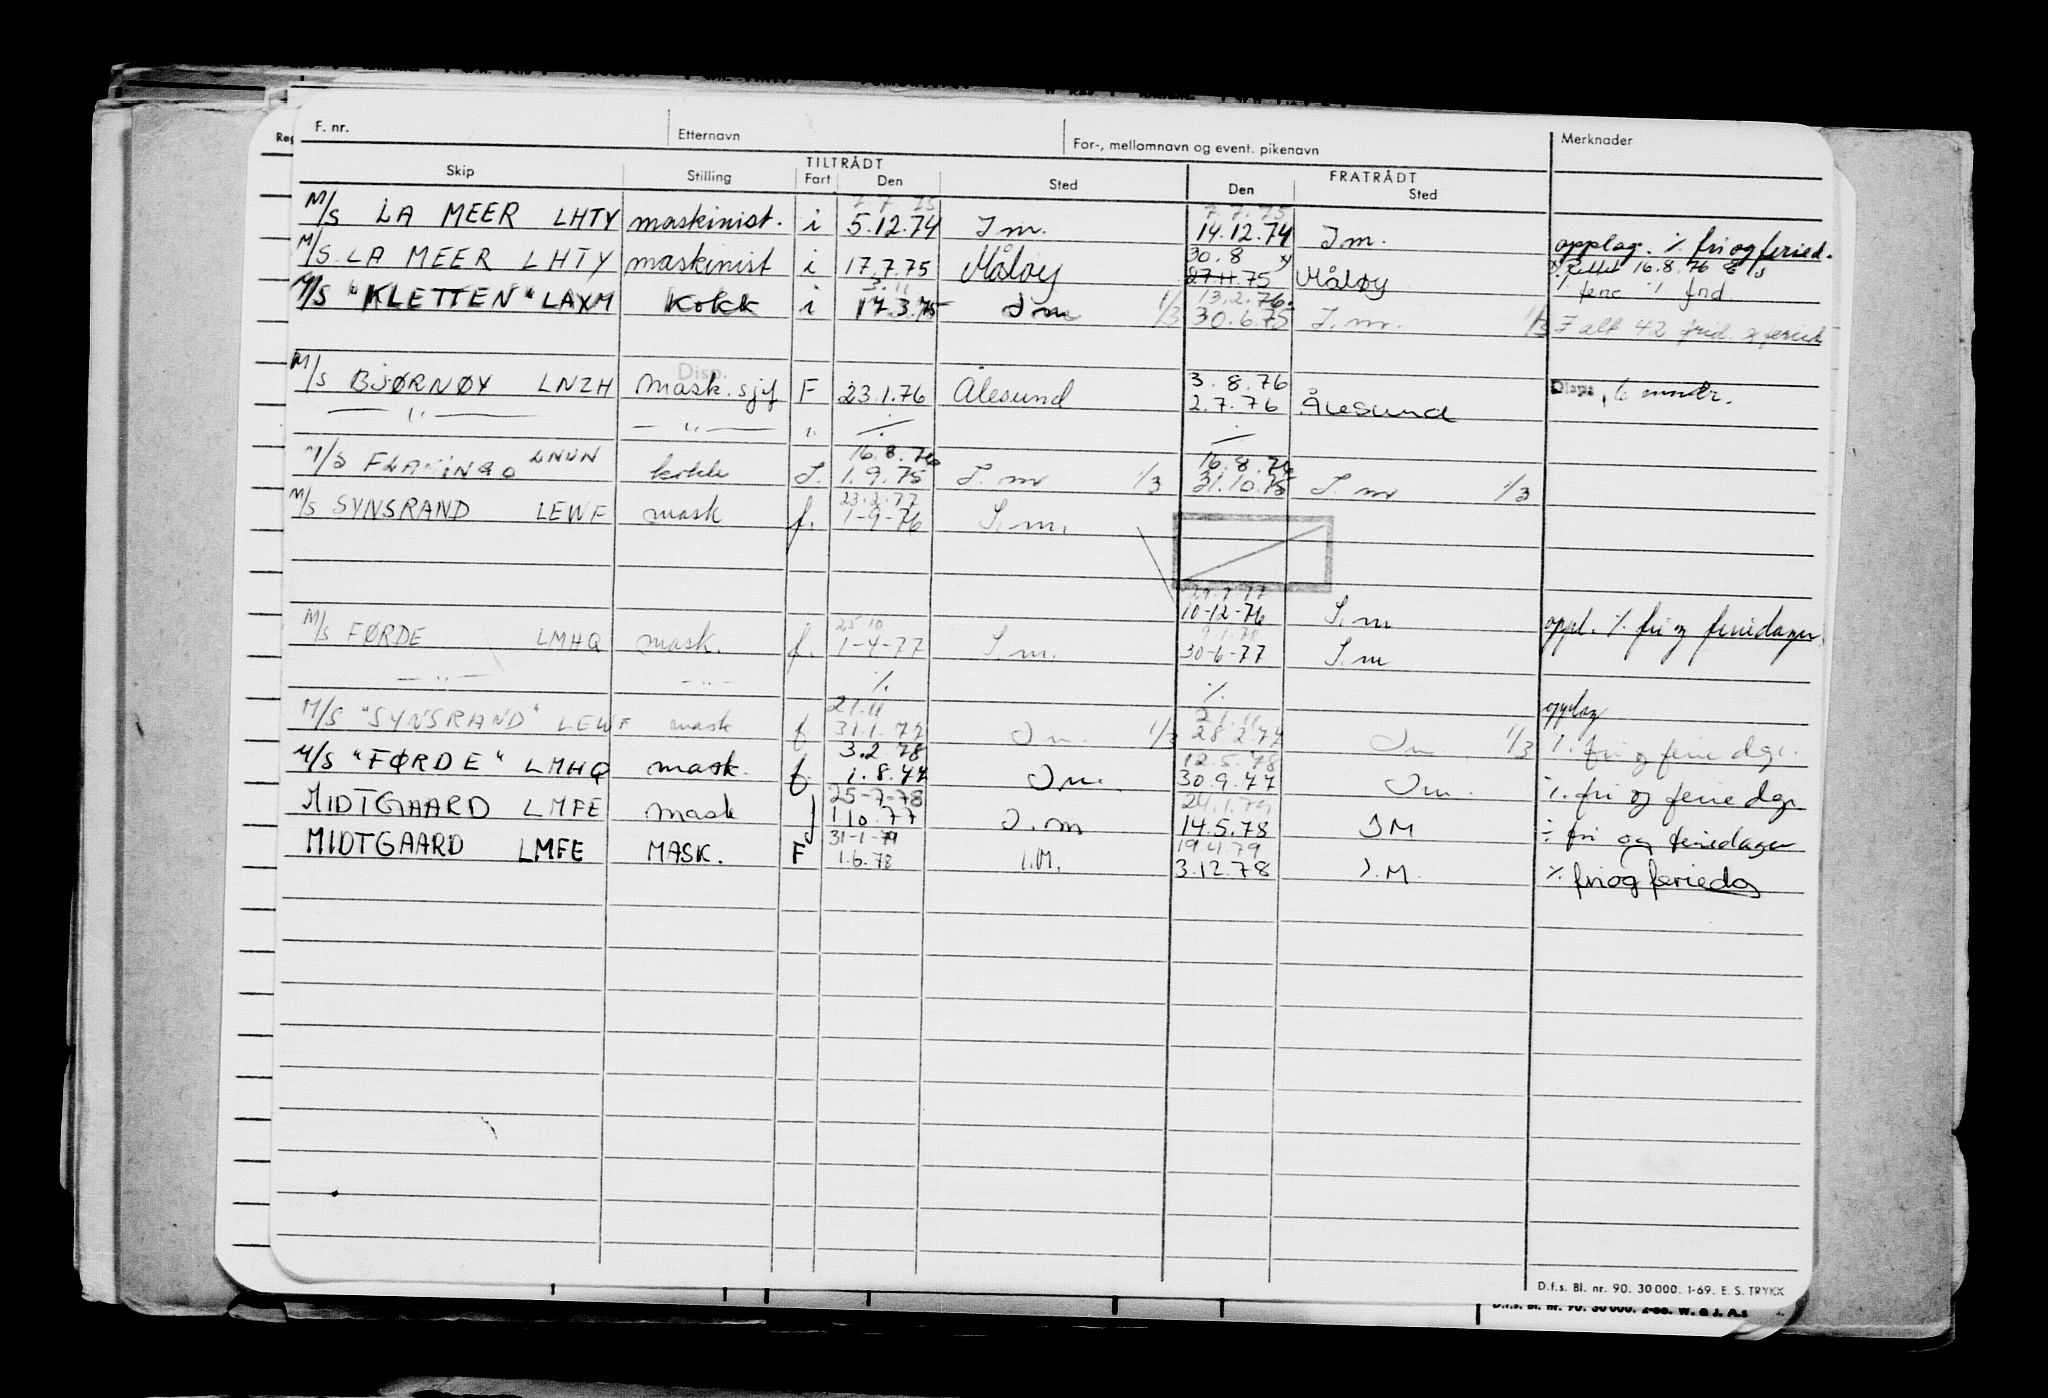 F. nr. Etternavn For-, mellomnavn og event. pikenavn Merknader
TILTRÅDT FRATRÅDT
Skip Stilling Fart Den Sted Den Sted
7.7.75 7.7.75
M/S LA MEER LHTY maskinist. i 5.12.74 I m. 14.12.74 I m. opplag. % fri og feried.
30.8 x) x) Rettet 16.8.76
M/S. LA MEER LHTY maskinist i 17.7.75 Måløy 27.11.75 Måløy % ferie % frid
3.11 13.2.76.
M/S "KLETTEN" LAXM Kokk i 17.3.75 I m 1/3 30.6.75 I. m. 1/3 I alt 42 frid. og feried
Disp. 3.8.76
M/S BJØRNØY LNZH Mask. sjef F 23.1.76 Ålesund 2.7.76 Ålesund Disp. 6 mndr.
— " — — " — " % %
16.8.76 16.8.76
M/S FLAMINGO LNUN kokk I. 1.9.75 I. m 1/3 31.10.75 I. m 1/3
23.2.77
M/S SYNSRAND LEWF mask f. 1-9-76 I. m.
10-12-76 I. m oppl. % fri og feriedager.
25.10 9.1.78
M/S FØRDE LMHQ mask. f. 1-4-77 I. m. 30-6-77 I. m
— " — — " — % %
21.11 21.11 opplag
M/S "SYNSRAND" LEWF mask f 31.1.77 I m. 1/3 28.2.77 I m. 1/3 %. fri og ferie dgr.
3.2.78 12.5.78
M/S "FØRDE" LMHQ mask. f. 1.8.77 I m. 30.9.77 I m. %. fri og ferie dgr
25-7-78 24.1.79
MIDTGAARD LMFE mask f 1.10.77 I. m 14.5.78 I M ÷ fri og feriedager
31-1-79 19.4.79
MIDTGAARD LMFE MASK. F 1.6.78 I.M. 3.12.78 I. M. % fri og feriedg
D.f.s. Bl. nr. 90. 30000. 1-69. E. S. TRYKK